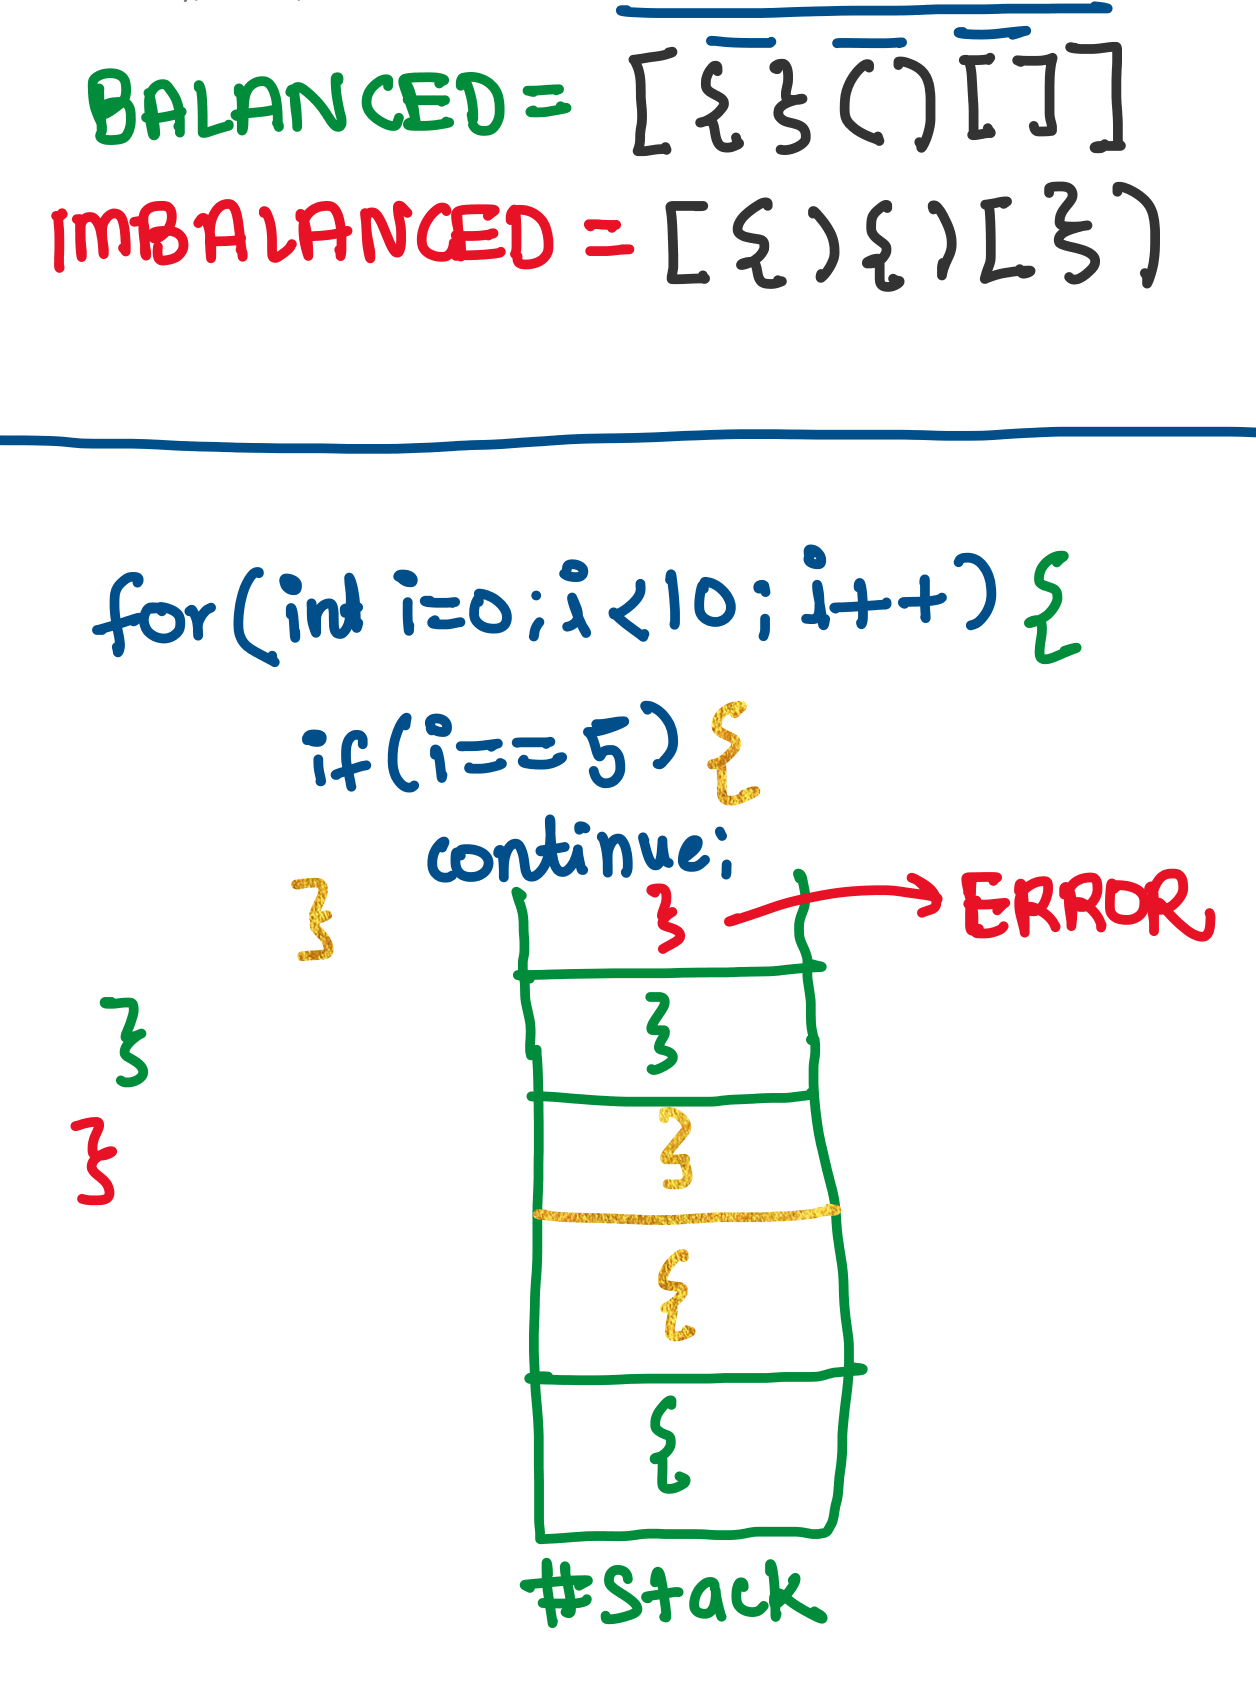 BALANCED = [{}()[]]
ImBALANCED = [{){)[})
for(int i=0;i<10; i++){
if(i==5){
continue;
}
} → ERROR
}
}
}
}
{
{
#stack